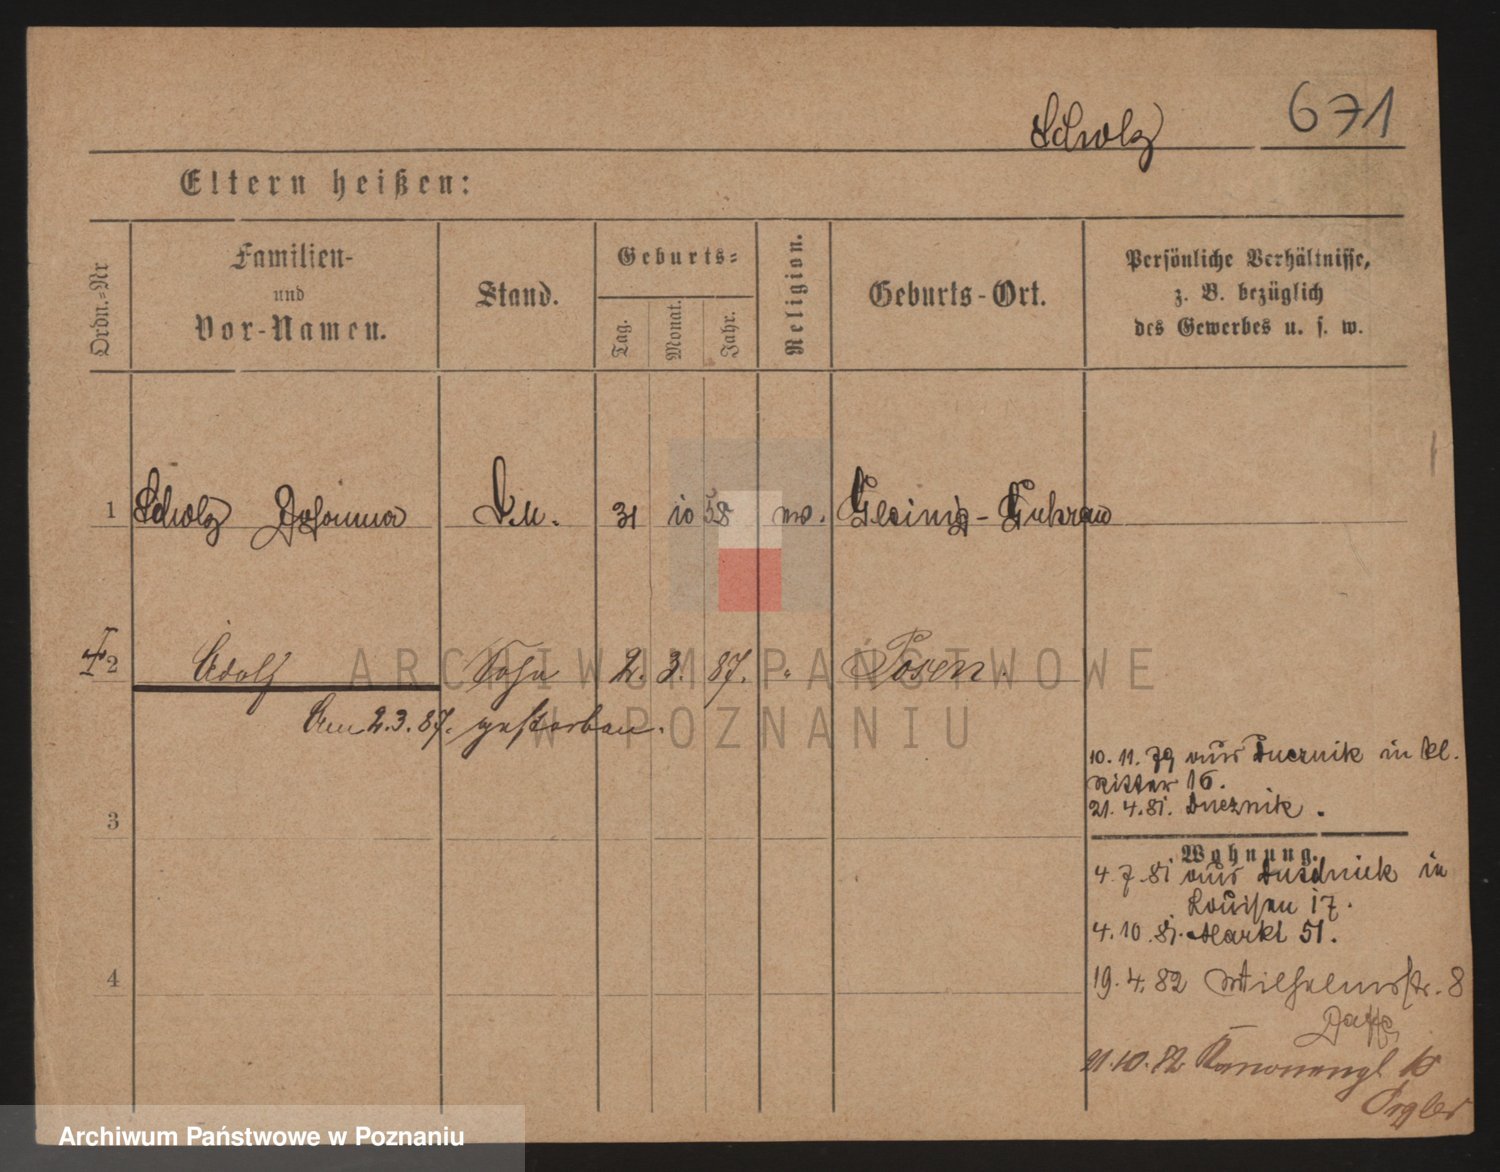 Scholz 671
Eltern heißen:
Ordn.=Nr
Familien-
und
Vor-Namen.
Stand.
Geburts=
Tag.
Monat.
Jahr.
Religion.
Geburts-Ort.
Persönliche Verhältnisse,
z. B. bezüglich
des Gewerbes u. s. w.
1 Scholz Johanna D.M. 31 10 58 ev. Gleinig-Guhrau
2 Adolf Sohn 2. 3. 87. " Posen.
Am 2.3.87. gestorben.
3
4
10. 11. 79 aus in Kl.
Ritter 16.
21. 4. 81.
Wohnung.
4. 7. 81 aus in
Louisen 17.
4. 10. 81. Markt 51.
19. 4. 82 Wilhelmsstr. 8
21. 10. 82
ARCHIWUM PAŃSTWOWE
W POZNANIU
Archiwum Państwowe w Poznaniu